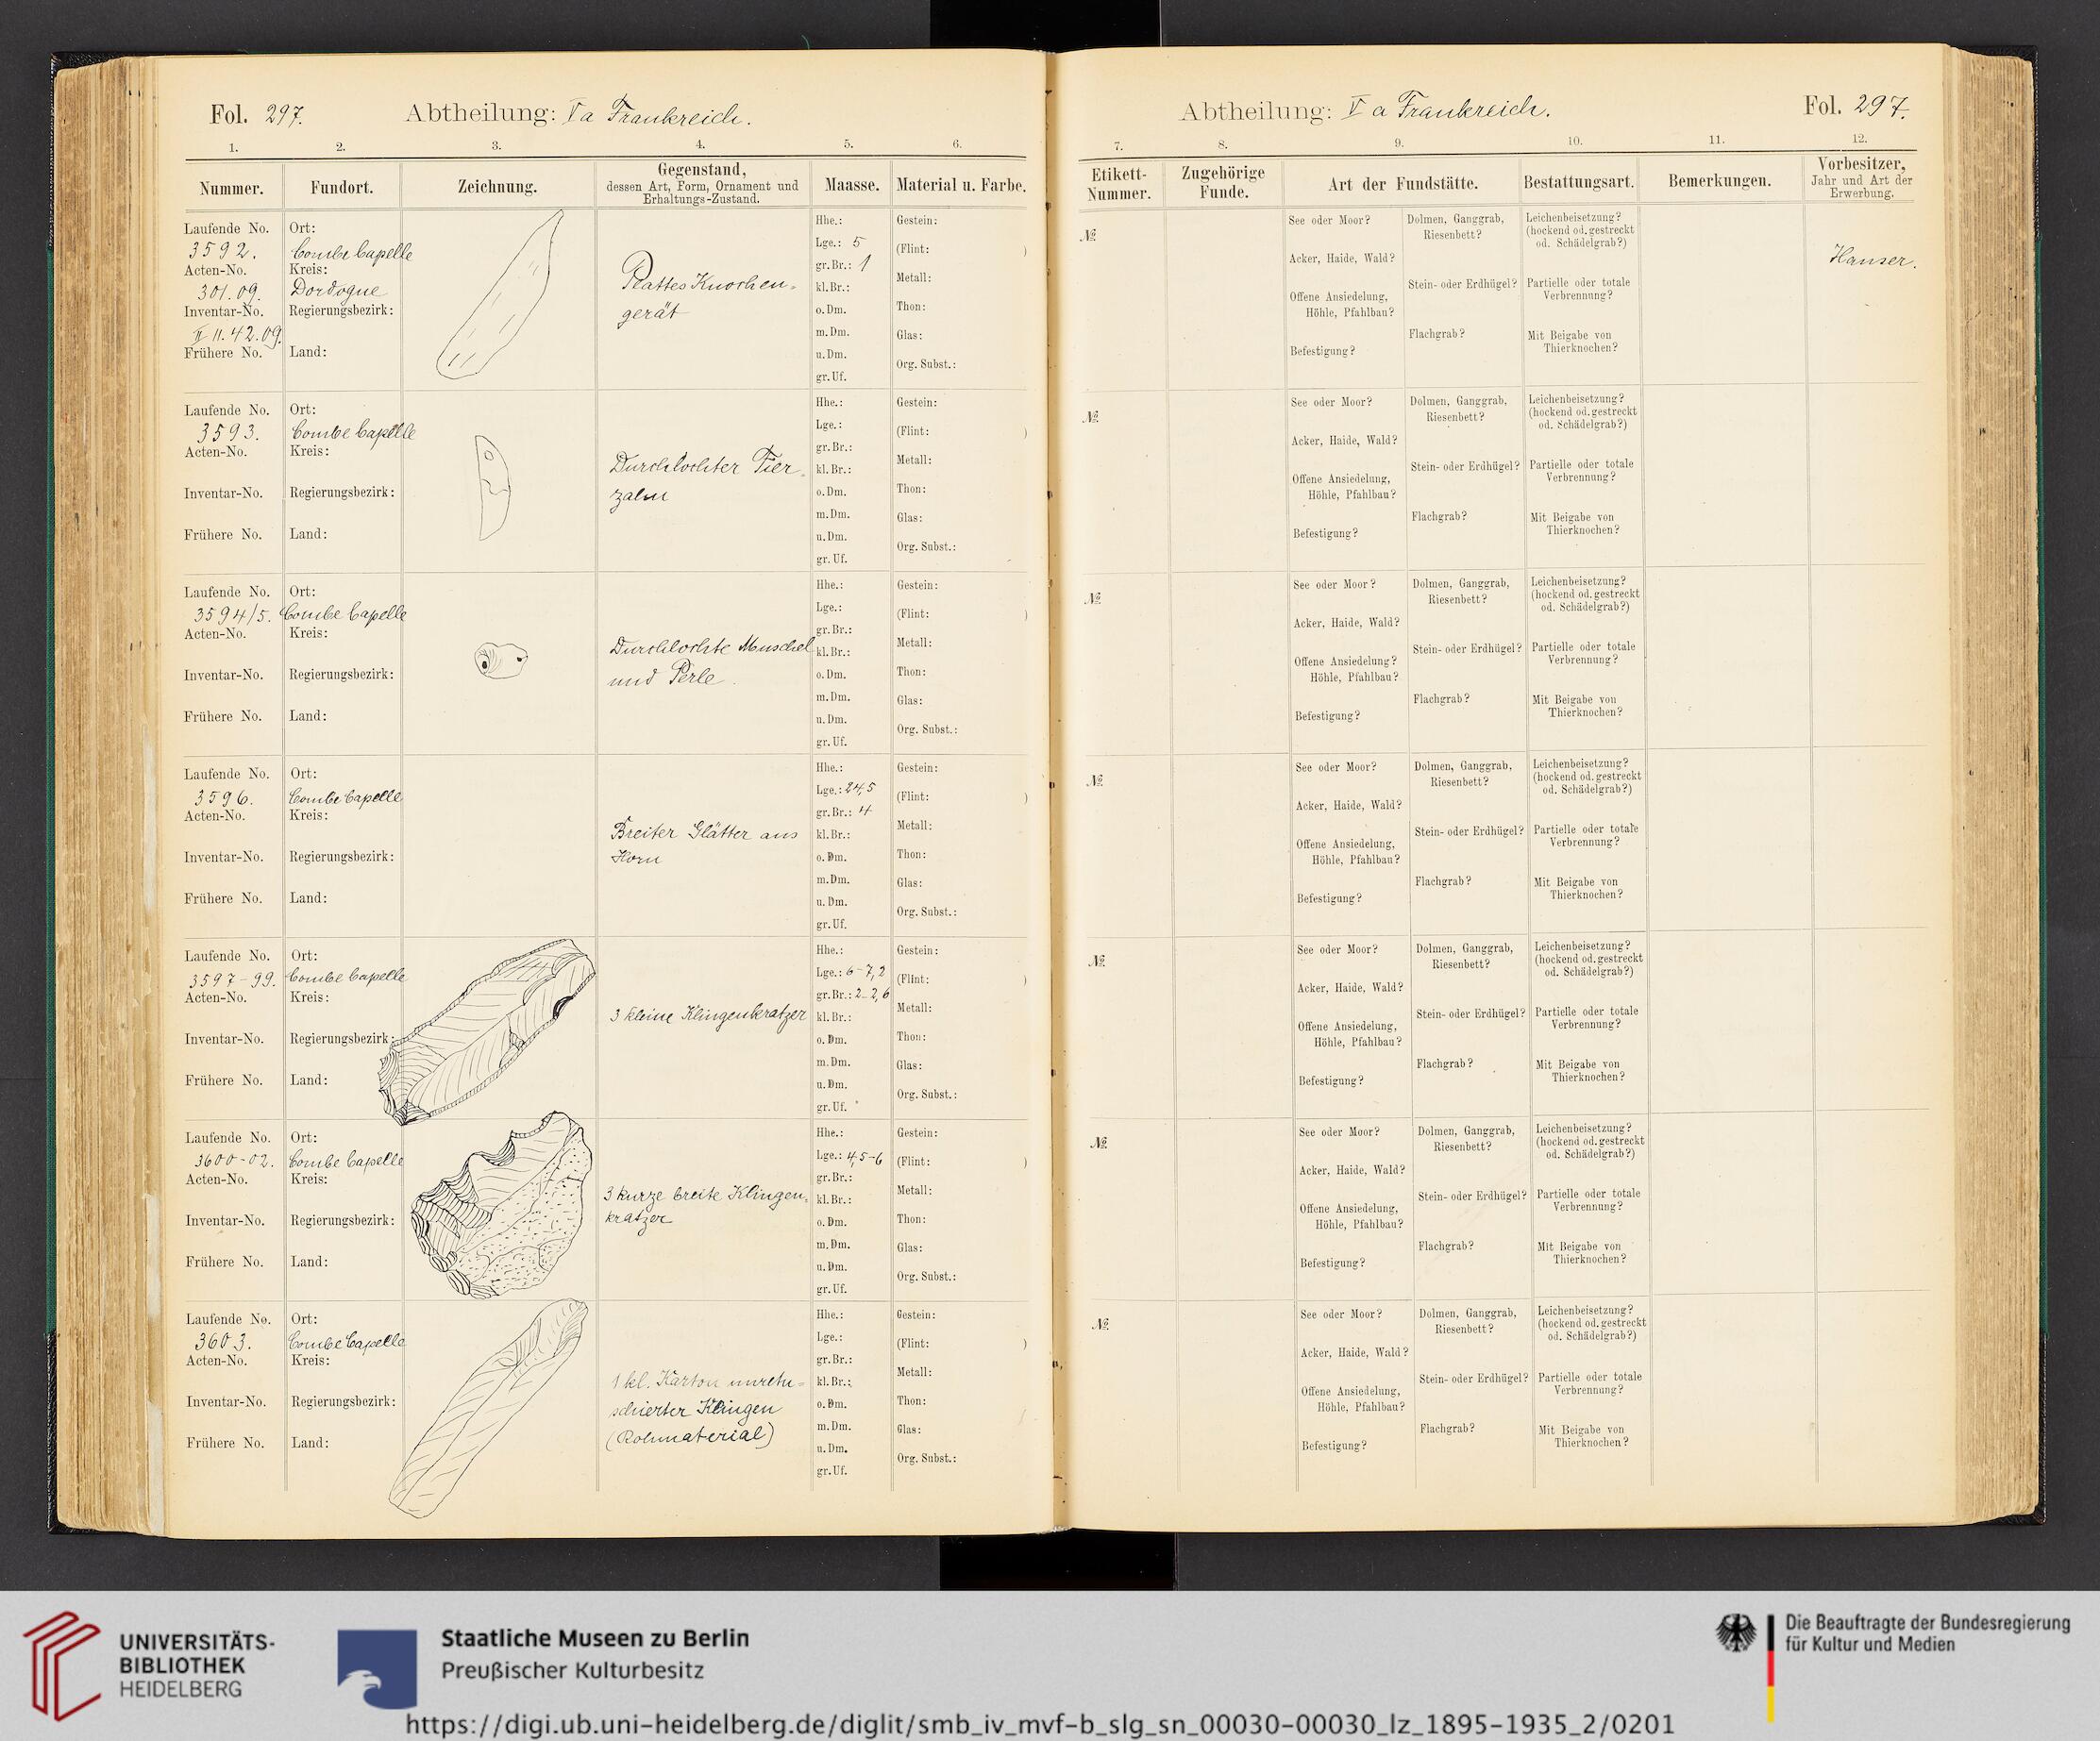 Fol. 297.
Abtheilung: V a Frankreich.
1.
2.
3.
4.
5.
6.
Nummer.
Fundort.
Zeichnung.
Gegenstand,
dessen Art, Form, Ornament und
Erhaltungs-Zustand.
Maasse.
Material u. Farbe.
Laufende No.
3592.
Acten-No.
301.09.
Inventar-No.
II 11.42.09.
Frühere No.
Ort:
Combe Capelle
Kreis:
Dordogne
Regierungsbezirk:
Land:
Plattes Knochen-
gerät
Hhe.:
Lge.: 5
gr. Br.: 1
kl. Br.:
o. Dm.
m. Dm.
u. Dm.
gr. Uf.
Gestein:
(Flint: )
Metall:
Thon:
Glas:
Org. Subst.:
Laufende No.
3593.
Acten-No.
Inventar-No.
Frühere No.
Ort:
Combe Capelle
Kreis:
Regierungsbezirk:
Land:
Durchlochter Tier-
zahn
Hhe.:
Lge.:
gr. Br.:
kl. Br.:
o. Dm.
m. Dm.
u. Dm.
gr. Uf.
Gestein:
(Flint: )
Metall:
Thon:
Glas:
Org. Subst.:
Laufende No.
3594/5.
Acten-No.
Inventar-No.
Frühere No.
Ort:
Combe Capelle
Kreis:
Regierungsbezirk:
Land:
Durchlochte Muschel
und Perle.
Hhe.:
Lge.:
gr. Br.:
kl. Br.:
o. Dm.
m. Dm.
u. Dm.
gr. Uf.
Gestein:
(Flint: )
Metall:
Thon:
Glas:
Org. Subst.:
Laufende No.
3596.
Acten-No.
Inventar-No.
Frühere No.
Ort:
Combe Capelle
Kreis:
Regierungsbezirk:
Land:
Breiter Glätter aus
Horn
Hhe.:
Lge.: 24,5
gr. Br.: 4
kl. Br.:
o. Dm.
m. Dm.
u. Dm.
gr. Uf.
Gestein:
(Flint: )
Metall:
Thon:
Glas:
Org. Subst.:
Laufende No.
3597-99.
Acten-No.
Inventar-No.
Frühere No.
Ort:
Combe Capelle
Kreis:
Regierungsbezirk:
Land:
3 kleine Klingenkratzer
Hhe.:
Lge.: 6-7,2
gr. Br.: 2-2,6
kl. Br.:
o. Dm.
m. Dm.
u. Dm.
gr. Uf.
Gestein:
(Flint: )
Metall:
Thon:
Glas:
Org. Subst.:
Laufende No.
3600-02.
Acten-No.
Inventar-No.
Frühere No.
Ort:
Combe Capelle
Kreis:
Regierungsbezirk:
Land:
3 kurze breite Klingen-
kratzer
Hhe.:
Lge.: 4,5-6
gr. Br.:
kl. Br.:
o. Dm.
m. Dm.
u. Dm.
gr. Uf.
Gestein:
(Flint: )
Metall:
Thon:
Glas:
Org. Subst.:
Laufende No.
3603.
Acten-No.
Inventar-No.
Frühere No.
Ort:
Combe Capelle
Kreis:
Regierungsbezirk:
Land:
1 kl. Karton unretu-
schierter Klingen
(Rohmaterial)
Hhe.:
Lge.:
gr. Br.:
kl. Br.:
o. Dm.
m. Dm.
u. Dm.
gr. Uf.
Gestein:
(Flint: )
Metall:
Thon:
Glas:
Org. Subst.:
Abtheilung: V a Frankreich.
Fol. 297.
7.
8.
9.
10.
11.
12.
Etikett-
Nummer.
Zugehörige
Funde.
Art der Fundstätte.
Bestattungsart.
Bemerkungen.
Vorbesitzer,
Jahr und Art der
Erwerbung.
№
See oder Moor?
Acker, Haide, Wald?
Offene Ansiedelung,
Höhle, Pfahlbau?
Befestigung?
Dolmen, Ganggrab,
Riesenbett?
Stein- oder Erdhügel?
Flachgrab?
Leichenbeisetzung?
(hockend od. gestreckt
od. Schädelgrab?)
Partielle oder totale
Verbrennung?
Mit Beigabe von
Thierknochen?
Hauser.
№
See oder Moor?
Acker, Haide, Wald?
Offene Ansiedelung,
Höhle, Pfahlbau?
Befestigung?
Dolmen, Ganggrab,
Riesenbett?
Stein- oder Erdhügel?
Flachgrab?
Leichenbeisetzung?
(hockend od. gestreckt
od. Schädelgrab?)
Partielle oder totale
Verbrennung?
Mit Beigabe von
Thierknochen?
№
See oder Moor?
Acker, Haide, Wald?
Offene Ansiedelung?
Höhle, Pfahlbau?
Befestigung?
Dolmen, Ganggrab,
Riesenbett?
Stein- oder Erdhügel?
Flachgrab?
Leichenbeisetzung?
(hockend od. gestreckt
od. Schädelgrab?)
Partielle oder totale
Verbrennung?
Mit Beigabe von
Thierknochen?
№
See oder Moor?
Acker, Haide, Wald?
Offene Ansiedelung,
Höhle, Pfahlbau?
Befestigung?
Dolmen, Ganggrab,
Riesenbett?
Stein- oder Erdhügel?
Flachgrab?
Leichenbeisetzung?
(hockend od. gestreckt
od. Schädelgrab?)
Partielle oder totale
Verbrennung?
Mit Beigabe von
Thierknochen?
№
See oder Moor?
Acker, Haide, Wald?
Offene Ansiedelung,
Höhle, Pfahlbau?
Befestigung?
Dolmen, Ganggrab,
Riesenbett?
Stein- oder Erdhügel?
Flachgrab?
Leichenbeisetzung?
(hockend od. gestreckt
od. Schädelgrab?)
Partielle oder totale
Verbrennung?
Mit Beigabe von
Thierknochen?
№
See oder Moor?
Acker, Haide, Wald?
Offene Ansiedelung,
Höhle, Pfahlbau?
Befestigung?
Dolmen, Ganggrab,
Riesenbett?
Stein- oder Erdhügel?
Flachgrab?
Leichenbeisetzung?
(hockend od. gestreckt
od. Schädelgrab?)
Partielle oder totale
Verbrennung?
Mit Beigabe von
Thierknochen?
№
See oder Moor?
Acker, Haide, Wald?
Offene Ansiedelung,
Höhle, Pfahlbau?
Befestigung?
Dolmen, Ganggrab,
Riesenbett?
Stein- oder Erdhügel?
Flachgrab?
Leichenbeisetzung?
(hockend od. gestreckt
od. Schädelgrab?)
Partielle oder totale
Verbrennung?
Mit Beigabe von
Thierknochen?
UNIVERSITÄTS-
BIBLIOTHEK
HEIDELBERG
Staatliche Museen zu Berlin
Preußischer Kulturbesitz
Die Beauftragte der Bundesregierung
für Kultur und Medien
https://digi.ub.uni-heidelberg.de/diglit/smb_iv_mvf-b_slg_sn_00030-00030_lz_1895-1935_2/0201